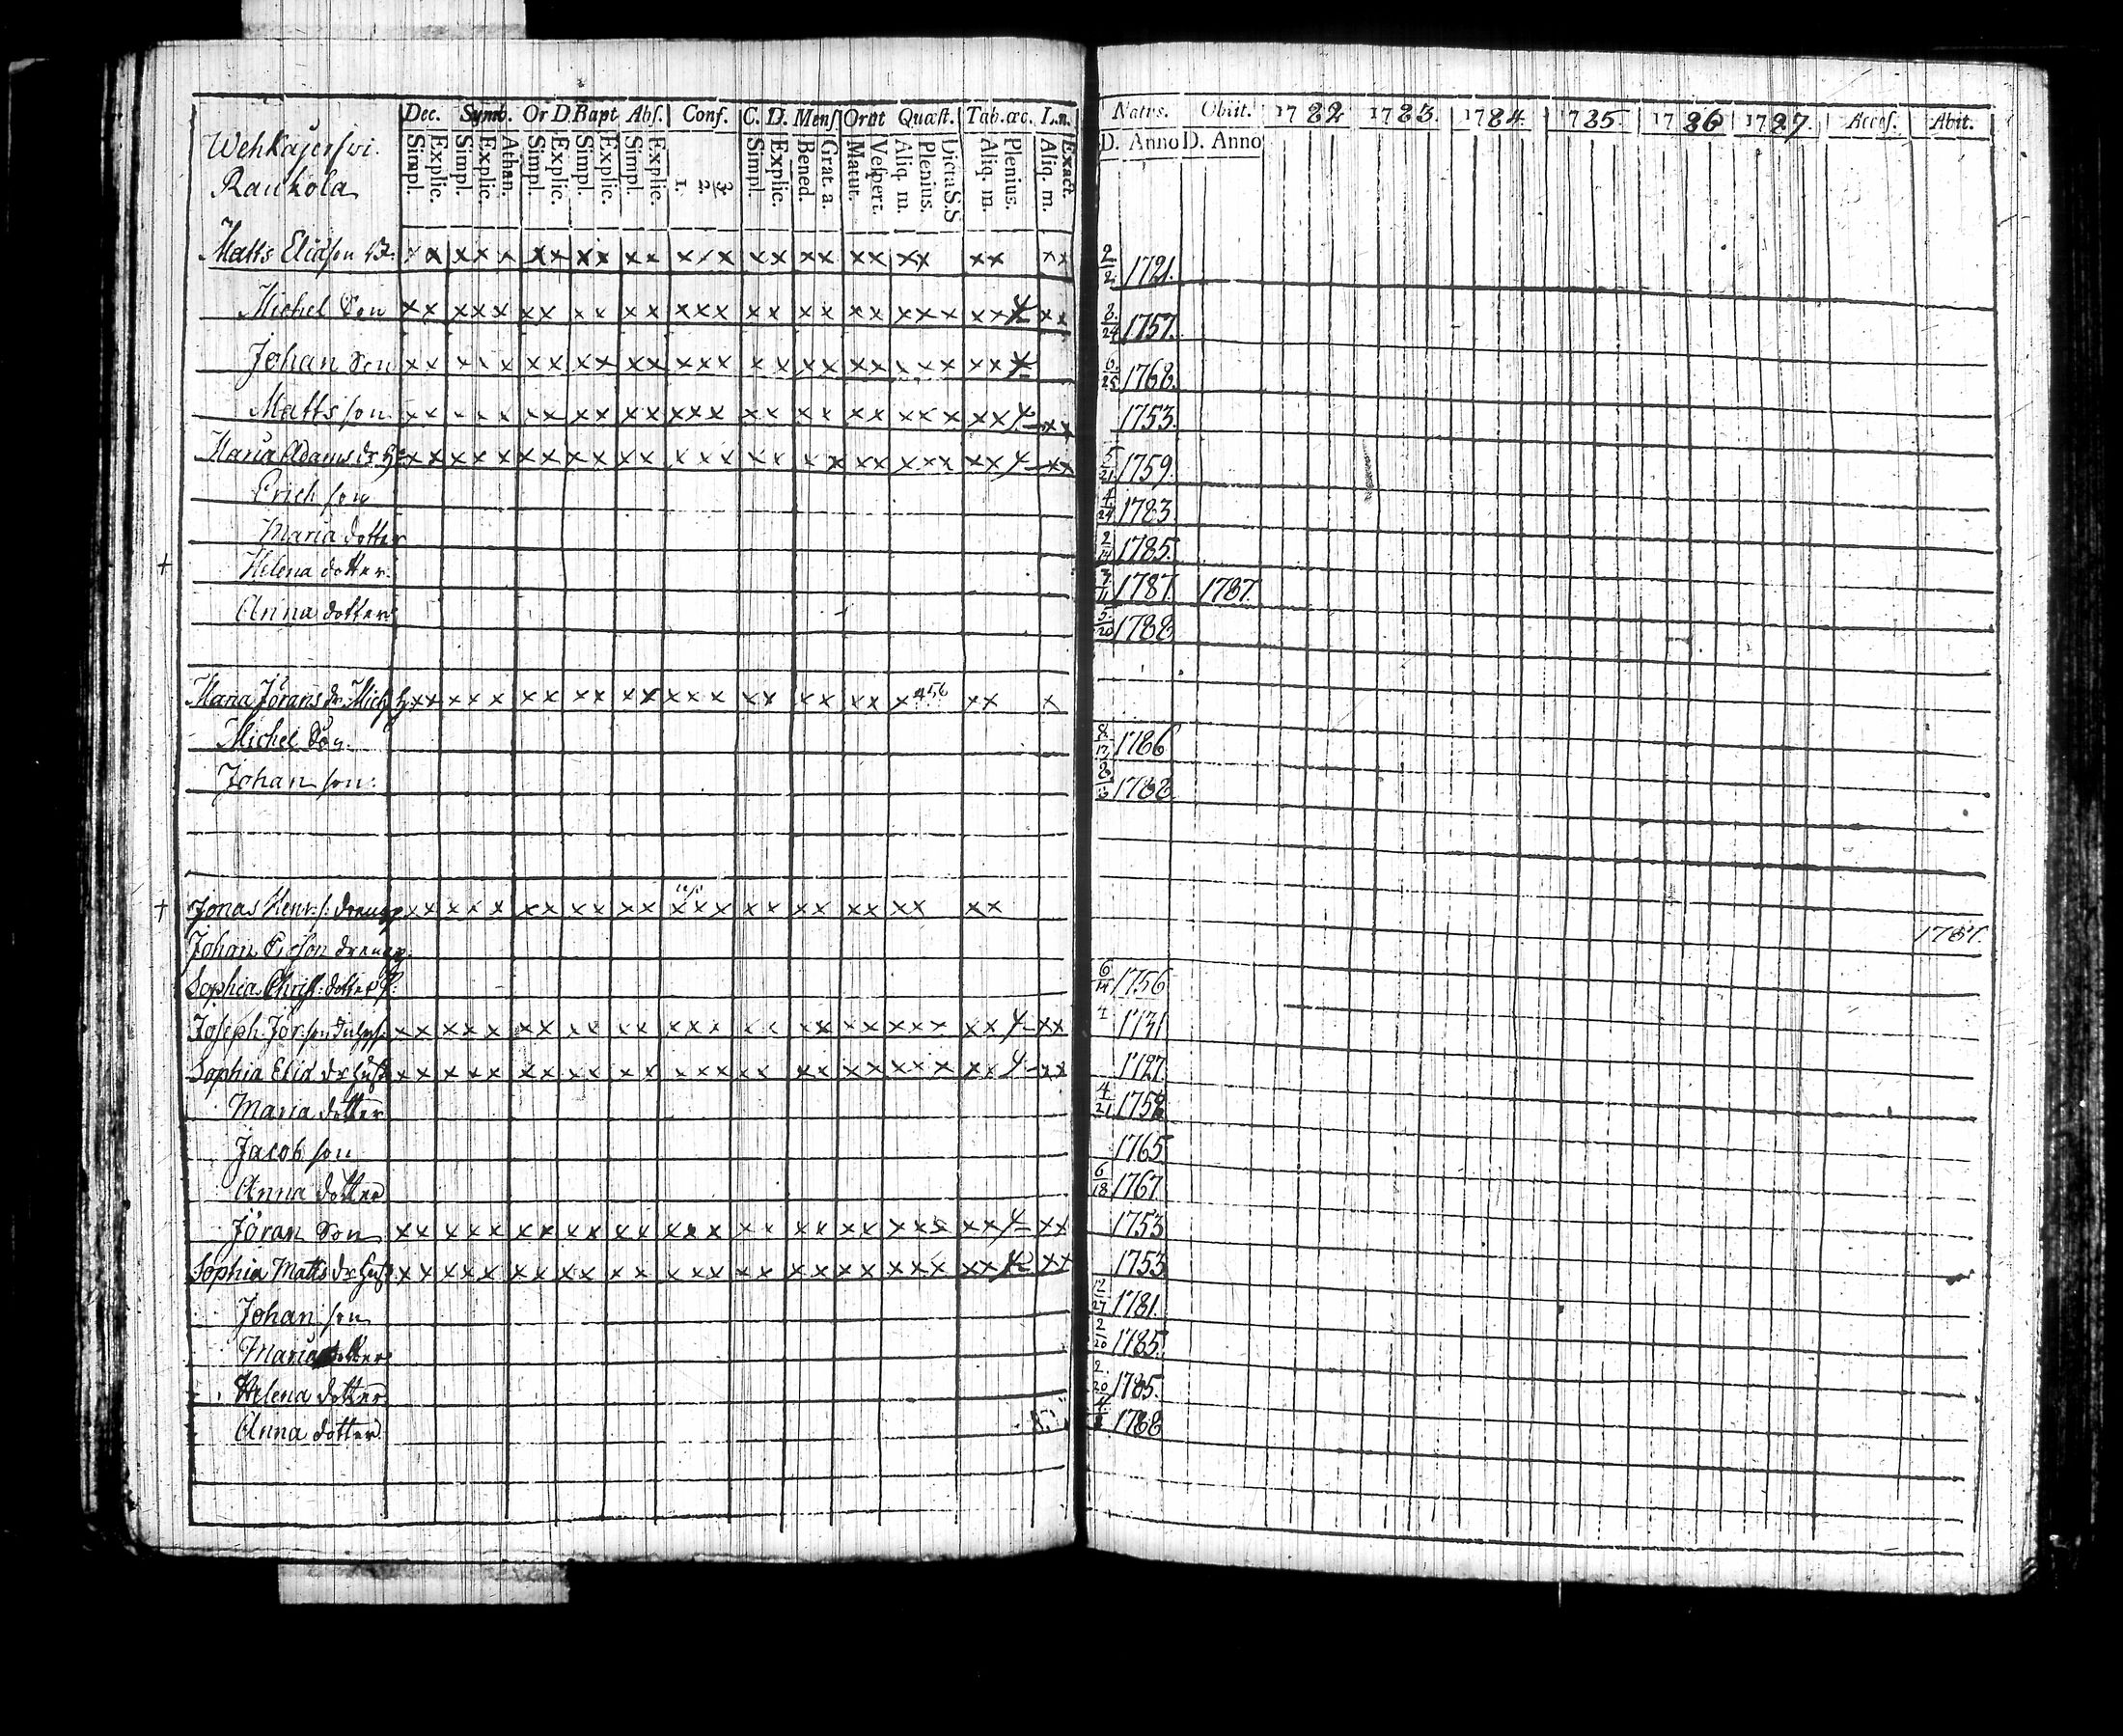 Dec. Symb. Or D Bapt Abs. Conf. C. D. Mens Orat Quæst. Tab. œc. L. n.
Simpl. Explic. Simpl. Explic. Athan. Simpl. Explic. Simpl. Explic. Simpl. Explic. 1. 2. 3. Simpl. Explic. Bened. Grat. a. Matut. Vespert. Aliq. m. Plenius. Dicta S.S Aliq. m. Plenius. Aliq. m. Exact.
Natus. Obiit. 1782 1783. 1784. 1785. 1786 1787. Acces. Abit.
D. Anno D. Anno
Wehkajerfwi.
Raukola
Matts Eliasson xx xxx xx xx xx xxx xx xx xx xx xx xx 2/2 1721.
Michel Son xx xxx xx xx xx xxx xx xx xx xxx xx 4 xx 8/24 1757.
Johan Son xx xxx xx xx xx xxx xx xx xx xxx xx 4 6/25 1768.
Matts son xx xxx xx xx xx xxx xx xx xx xxx xx 4 xx 1753.
Maria Adams dr xx xxx xx xx xx xxx xx xx xx xxx xx 4 xx 5/21 1759.
Erich son 4/24 1783
Maria dotter 2/14 1785.
† Helena dotter 1787. 1787.
Anna dotter 5/20 1788
Maria Jörans dr Mich xx xxx xx xx xx xxx xx xx xx x 456 xx x
Michel Son 8/17 1786
Johan son: 1788.
† Jonas Henr. s. dreng xx xxx xx xx xx xxx xx xx xx xx xx
Johan dreng 1787.
Sophia Christ. dotter 6/14 1756
Joseph Jör. son xx xxx xx xx xx xxx xx xx xx xxx xx 4 xx 4 1731
Sophia Elia dr hust xx xxx xx xx xx xxx xx xx xx xxx xx 4 xx 1727.
Maria dotter 4/21
Jacob son 1765
Anna dotter 6/18 1767
Jöran Son xx xxx xx xx xx xxx xx xx xx xxx xx 4 xx 1753
Sophia Matts dr hust xx xxx xx xx xx xxx xx xx xx xxx xx xx 1753
Johan son 12/27 1781.
Maria dotter 2/20 1785.
Helena dotter 2/20 1785.
Anna dotter 1788